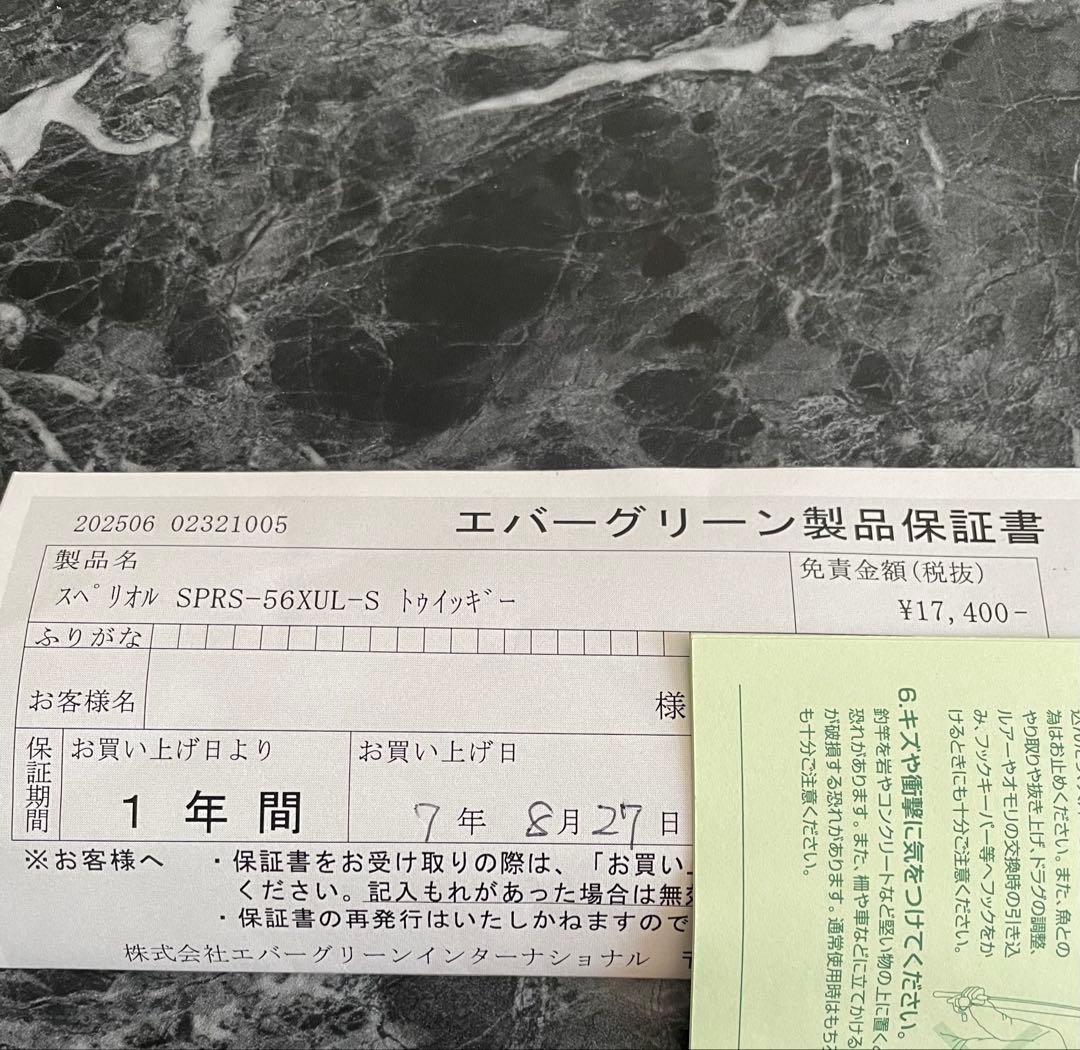 202506 02321005
エバーグリーン製品保証書
製品名
ｽﾍﾟﾘｵﾙ SPRS-56XUL-S ﾄｩｲｯｷﾞｰ
免責金額(税抜)
¥17,400-
ふりがな
お客様名
様
保証期間
お買い上げ日より
1 年 間
お買い上げ日
7年 8月27日
※お客様へ ・保証書をお受け取りの際は、「お買い
ください。記入もれがあった場合は無効
・保証書の再発行はいたしかねますので
株式会社エバーグリーンインターナショナル 〒
為はお止めください。また、魚との
やり取りや抜き上げ、ドラグの調整、
ルアーやオモリの交換時の引き込
み、フックキーパー等へフックをか
けるときにも十分ご注意ください。
6.キズや衝撃に気をつけてください。
釣竿を岩やコンクリートなど堅い物の上に置く
恐れがあります。また、柵や車などに立てかける
が破損する恐れがあります。通常使用時はもちろ
も十分ご注意ください。